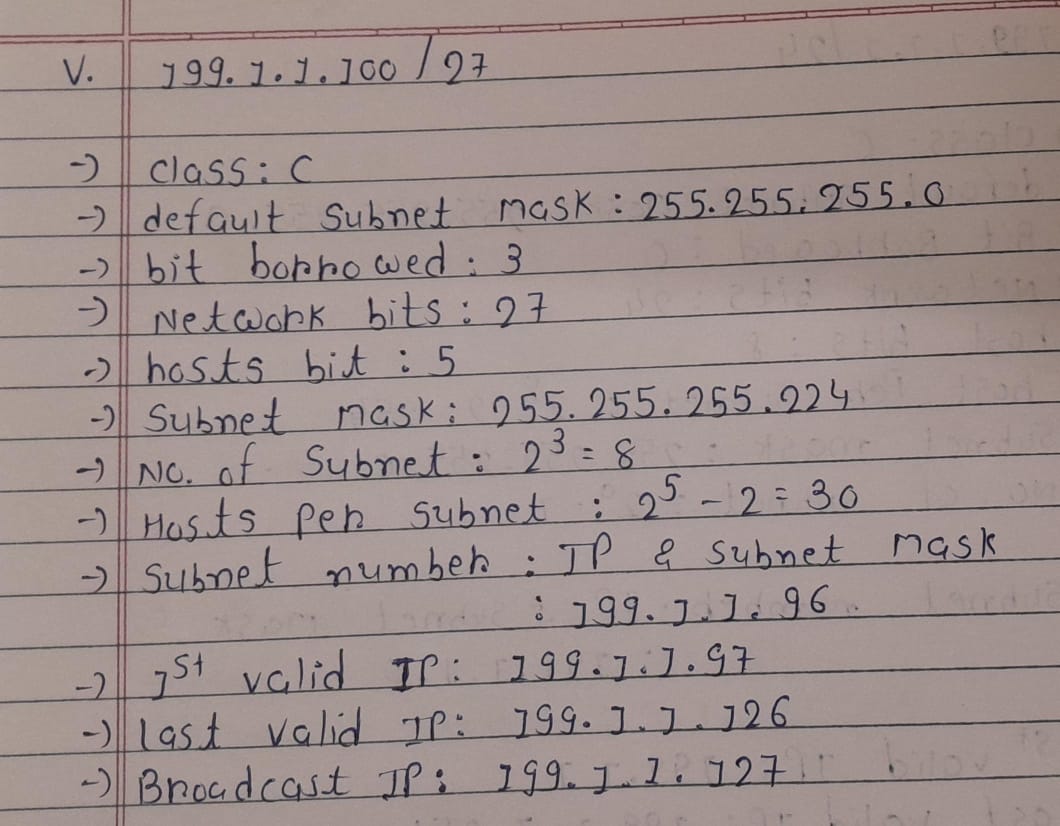 V. 199.1.1.100 / 27
-) class: C
-) default subnet mask : 255.255.255.0
-) bit borrowed : 3
-) Network bits : 27
-) hosts bit : 5
-) Subnet mask : 255.255.255.224
-) No. of Subnet : 2³ = 8
-) Hosts per subnet : 2⁵ - 2 = 30
-) Subnet number : IP & subnet mask
: 199.1.1.96
-) 1st valid IP : 199.1.1.97
-) last valid IP : 199.1.1.126
-) Broadcast IP : 199.1.1.127